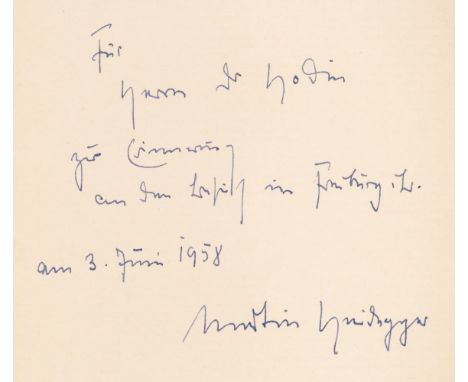 Für
Herrn Dr Hodin
zur Erinnerung
an den Besuch in Freiburg i. Br.
am 3. Juni 1958
Martin Heidegger